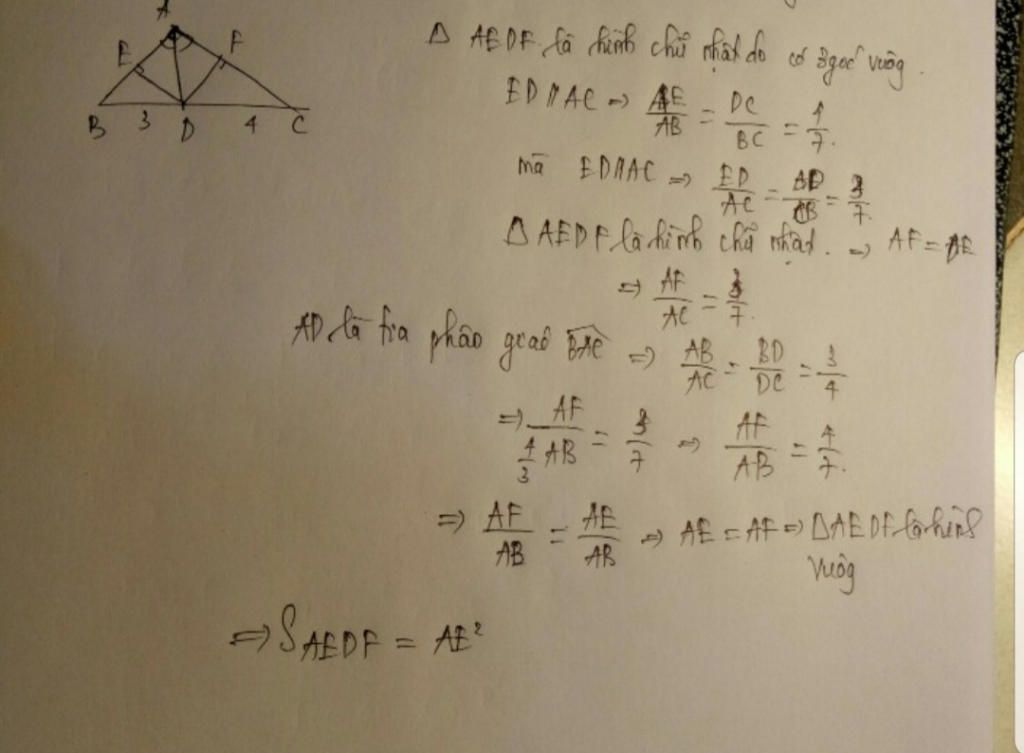 A
E F
B 3 D 4 C
Δ AEDF là hình chữ nhật do có 3 góc vuông.
ED // AC ⇒ AE/AB = DC/BC = 4/7.
mà ED // AC ⇒ ED/AC = BD/CB = 3/7.
Δ AEDF là hình chữ nhật. ⇒ AF = DE
⇒ AF/AC = 3/7.
AD là tia phân giác BAC ⇒ AB/AC = BD/DC = 3/4
⇒ AF/(4/3 AB) = 3/7 ⇒ AF/AB = 4/7.
⇒ AF/AB = AE/AB ⇒ AE = AF ⇒ Δ AEDF là hình
vuông
⇒ S AEDF = AE²